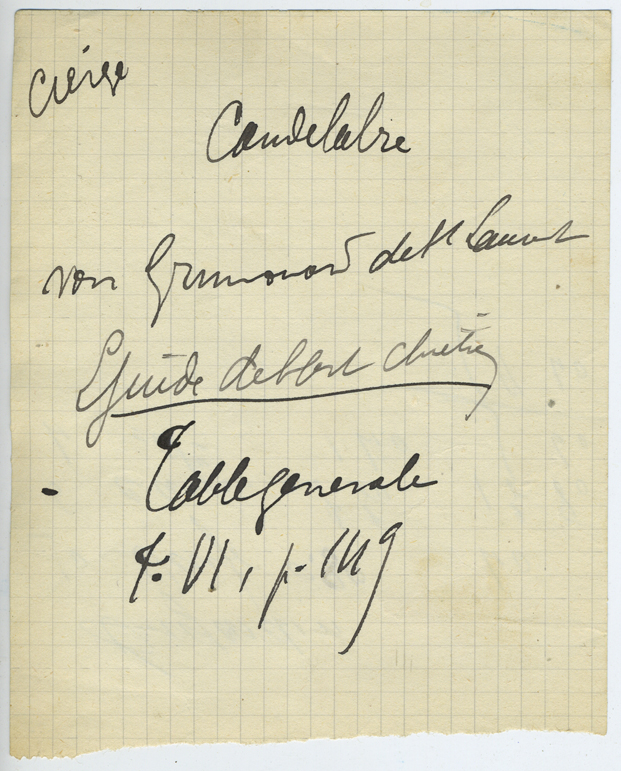 Cierge
Candelabre
voir Grimouard de St Laurent
Guide de l'art chrétien
Table generale
T. VI, p. 449